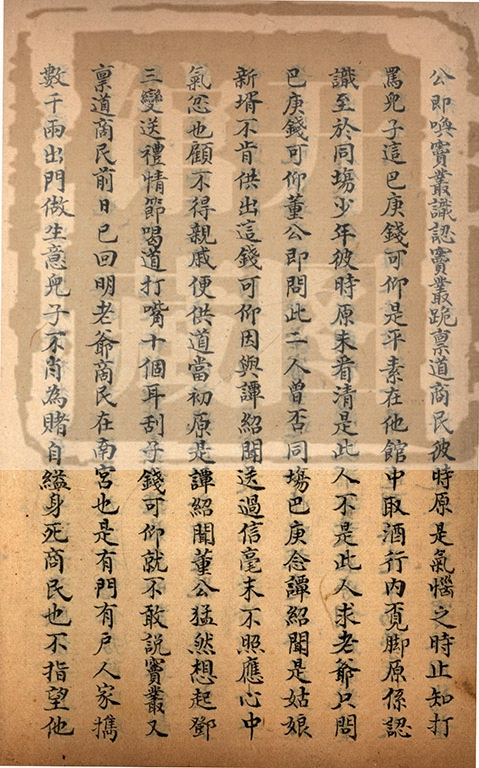 公即喚竇叢識認竇叢跪稟道商民彼時原是氣惱之時止知打
罵兒子這巴庚錢可仰是平素在他館中取酒行內覓脚原係認
識至於同塲少年彼時原未看清是此人不是此人求老爺只問
巴庚錢可仰董公即問此二人曾否同塲巴庚念譚紹聞是姑娘
新壻不肯供出這錢可仰因與譚紹聞送過信毫末不照應心中
氣忿也顧不得親戚便供道當初原是譚紹聞董公猛然想起鄧
三變送禮情節喝道打嘴十個耳刮子錢可仰就不敢說竇叢又
稟道商民前日已回明老爺商民在南宮也是有門有戶人家攜
數千兩出門做生意兒子不肖為賭自縊身死商民也不指望他